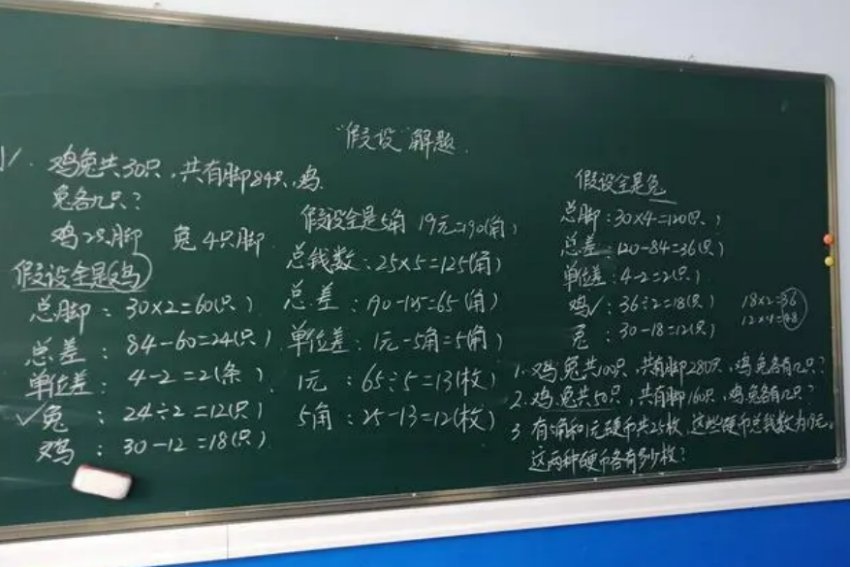 "假设"解题
1、鸡兔共30只，共有脚84只，鸡
兔各几只？
鸡2只脚 兔4只脚
假设全是鸡
总脚：30×2=60(只)
总差：84-60=24(只)
单位差：4-2=2(条)
✓兔：24÷2=12(只)
鸡：30-12=18(只)
假设全是5角 19元=190(角)
总钱数：25×5=125(角)
总差：190-125=65(角)
单位差：1元-5角=5(角)
1元：65÷5=13(枚)
5角：25-13=12(枚)
假设全是兔
总脚：30×4=120(只)
总差：120-84=36(只)
单位差：4-2=2(只)
鸡✓：36÷2=18(只)
兔：30-18=12(只)
18×2=36
12×4=48
1.鸡兔共100只，共有脚280只，鸡兔各有几只？
2.鸡兔共50只，共有脚160只，鸡兔各有几只？
3 有5角和1元硬币共25枚，这些硬币总钱数为19元。
这两种硬币各有多少枚？